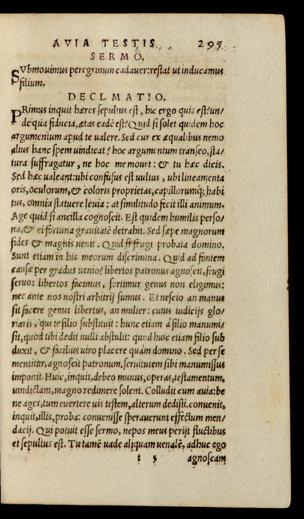 AVIA TESTIS. 295
SERMO.
SVbmouimus peregrinum cadauer: restat ut inducamus
filium.
DECLMATIO.
PRimus inquit hæres sepultus est, hic ergo quis est? un/
de quæ fiducia, ætas eadē est? Quid si solet quidem hoc
argumentum apud te ualere. Sed cur ex æqualibus nemo
alius hanc spem uindicat? hoc argumentum transeo, sta/
tura suffragatur, ne hoc me mouet: & tu hæc dicis.
Sed hæc ualeant: ubi confusus est uultus, ubi lineamenta
oris, oculorum, & coloris proprietas, capillorumq; habi
tus, omnia statuere leuia: at similitudo fecit illi animum.
Age quid si ancilla cognoscit. Est quidem humilis perso/
na, & ei fortuna grauitatē detrahit. Sed sæpe magnorum
fides & magnis uenit. Quid si frugi probata domino.
Sunt etiam in his meorum discrimina. Quid ad fontem
causæ per gradus uenio? libertos patronus agnoscit, frugi
seruos libertos facimus, sortimur genus non eligimus:
nec ante nos nostri arbitrij sumus. Et nescio an manus
sit facere genus libertus, an mulier: cuius iudicijs glo/
riaris, qui te filio substituit: hunc etiam & filio manumi/
sit, quod tibi dedit nulli abstulit: quod huic etiam filio sub
duxit, & facilius uiro placere quàm domino. Sed per se
mentitur, agnoscit patronum, seruituem sibi manumissus
imponit. Huic, inquit, debeo munus, operas, testamentum,
uindictam, magno redimere solent. Colludit cum auia: be
ne ages, tum euertere uis testem, alterum dedisti. conuenit,
inquit, illis, proba: conuenisse sperauerunt effectum men/
dacij. Qui potuit esse sermo, nepos meus perijt fluctibus
et sepultus est. Tu tamē uade aliquam uenalē, adhuc ego
t 5 agnoscam